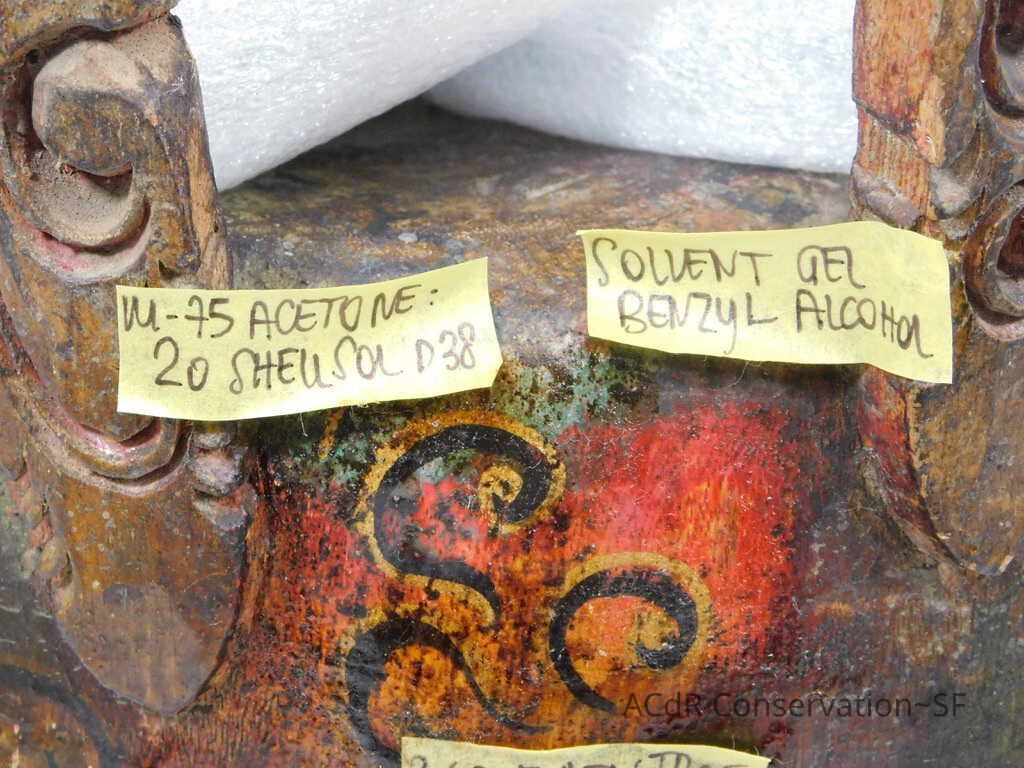 M-75 ACETONE:
20 SHELLSOL D38
SOLVENT GEL
BENZYL ALCOHOL
ACdR Conservation~SF